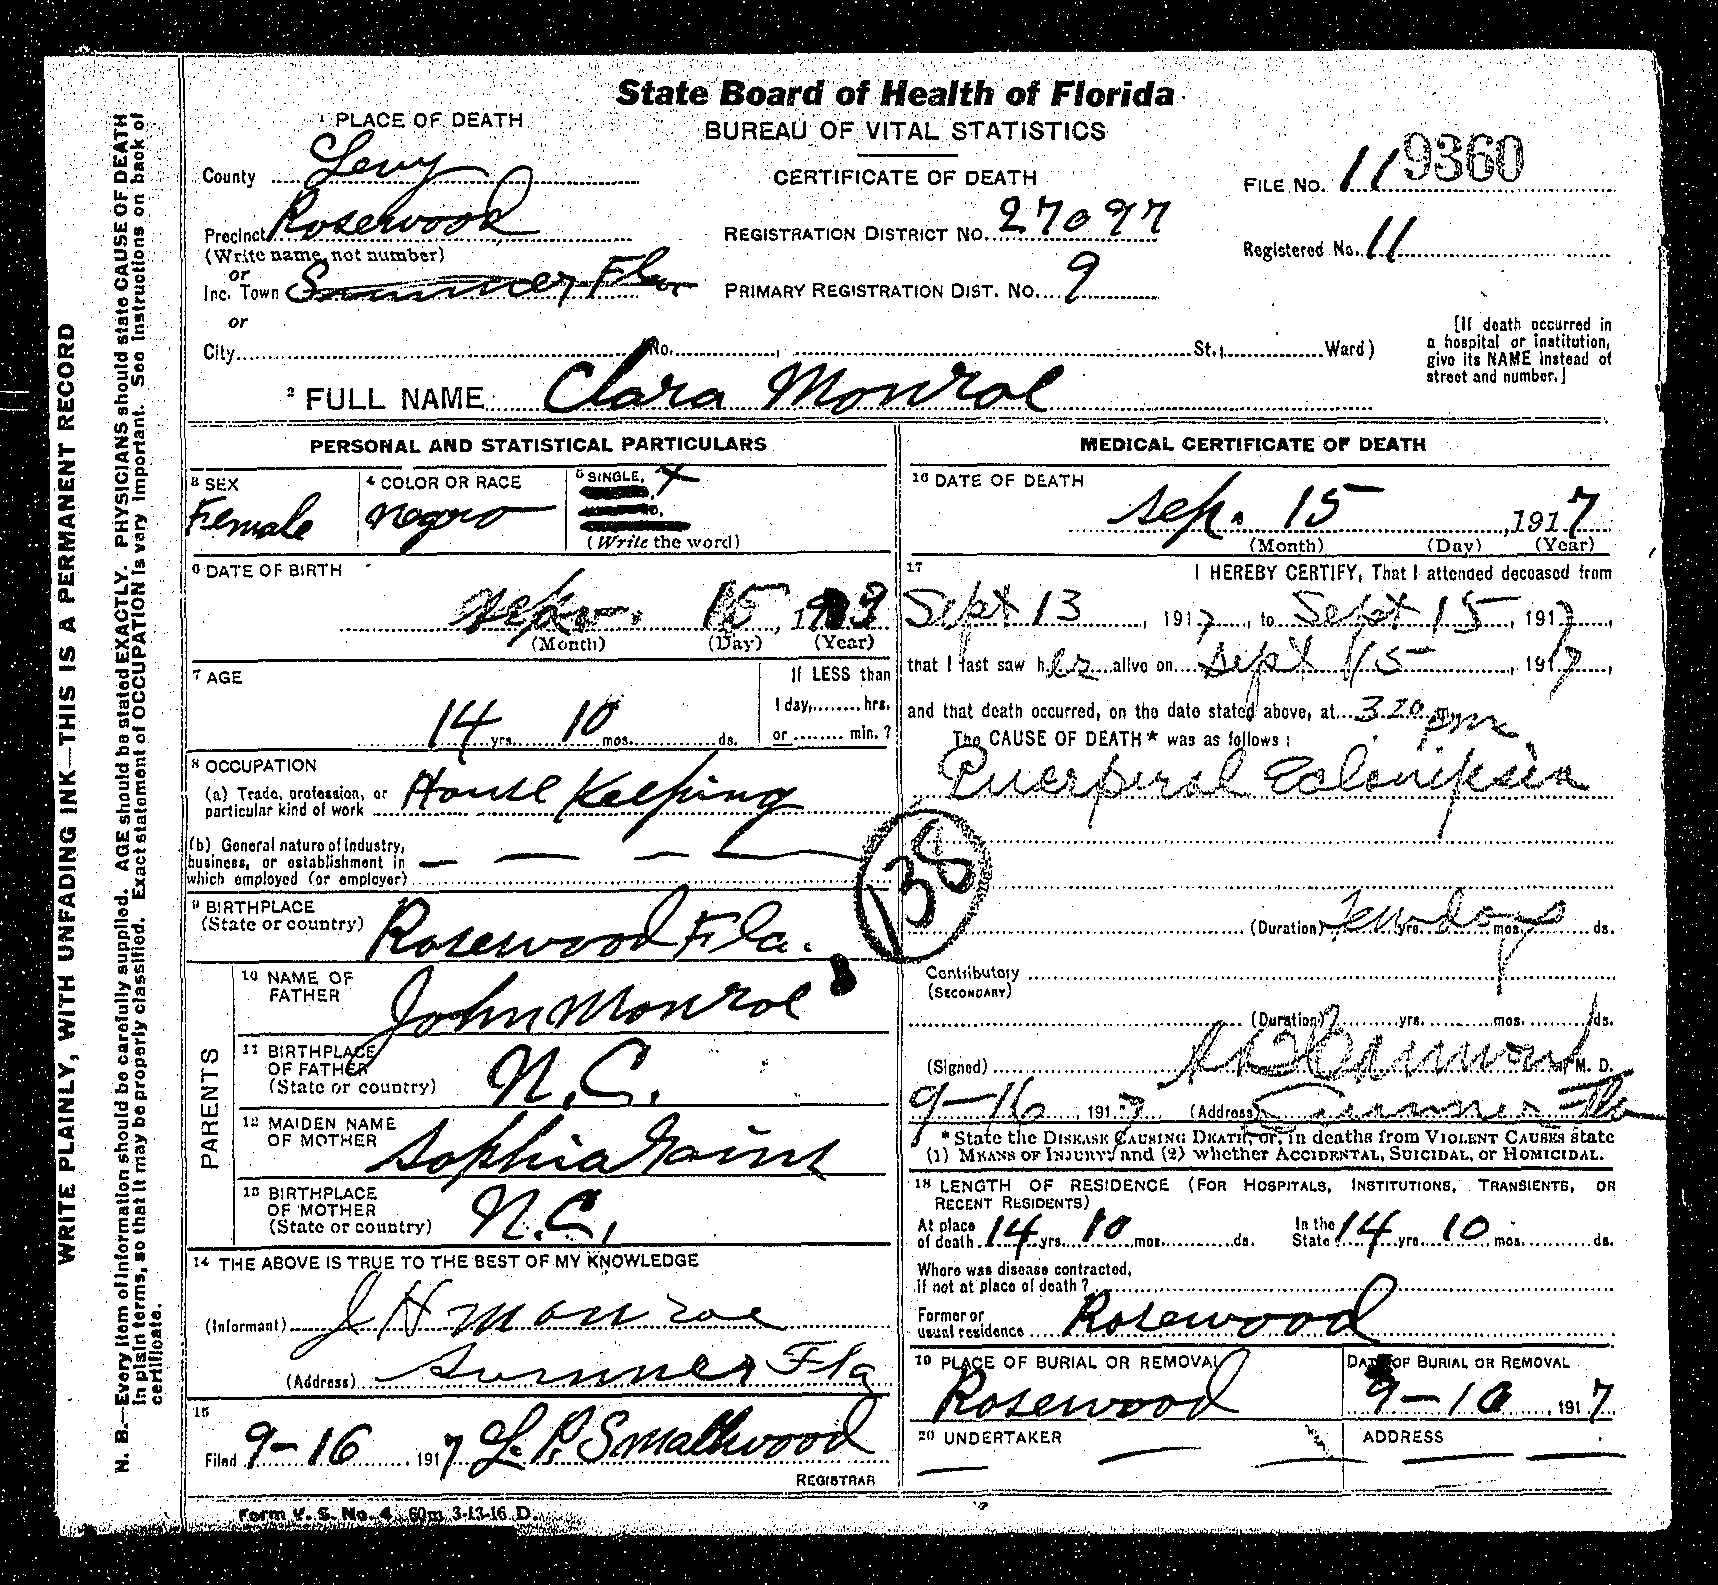 State Board of Health of Florida
BUREAU OF VITAL STATISTICS
CERTIFICATE OF DEATH
1 PLACE OF DEATH
County Levy
Precinct Rosewood
(Write name, not number)
or
Inc. Town Sumner Fla
or
City No. , St., Ward)
REGISTRATION DISTRICT NO. 27097
PRIMARY REGISTRATION DIST. NO. 9
FILE NO. 11 9360
Registered No. 11
[If death occurred in
a hospital or institution,
give its NAME instead of
street and number.]
2 FULL NAME Clara Monroe
PERSONAL AND STATISTICAL PARTICULARS
3 SEX
Female
4 COLOR OR RACE
negro
5 SINGLE, X
(Write the word)
6 DATE OF BIRTH
15, 1
(Month) (Day) (Year)
7 AGE
14 yrs. 10 mos. ds.
If LESS than
1 day, hrs.
or min.?
8 OCCUPATION
(a) Trade, profession, or
particular kind of work House Keeping
(b) General nature of industry,
business, or establishment in
which employed (or employer)
9 BIRTHPLACE
(State or country) Rosewood Fla.
PARENTS
10 NAME OF
FATHER John Monroe
11 BIRTHPLACE
OF FATHER
(State or country) N.C.
12 MAIDEN NAME
OF MOTHER Sophia
13 BIRTHPLACE
OF MOTHER
(State or country) N.C.
14 THE ABOVE IS TRUE TO THE BEST OF MY KNOWLEDGE
(Informant) J H Monroe
(Address) Sumner Fla
15
Filed 9-16, 1917 L. P. Smallwood
REGISTRAR
MEDICAL CERTIFICATE OF DEATH
16 DATE OF DEATH
Sep. 15, 1917
(Month) (Day) (Year)
17 I HEREBY CERTIFY, That I attended deceased from
Sept 13, 1917, to Sept 15, 1917,
that I last saw her alive on Sept 15, 1917,
and that death occurred, on the date stated above, at 3 20 pm
The CAUSE OF DEATH* was as follows:
Puerperal Eclampsia
138
(Duration) Few days yrs. mos. ds.
Contributory
(SECONDARY)
(Duration) yrs. mos. ds.
(Signed) M. D.
9-16, 1917 (Address) Sumner Fla
* State the DISEASE CAUSING DEATH, or, in deaths from VIOLENT CAUSES state
(1) MEANS OF INJURY; and (2) whether ACCIDENTAL, SUICIDAL, or HOMICIDAL.
18 LENGTH OF RESIDENCE (FOR HOSPITALS, INSTITUTIONS, TRANSIENTS, OR
RECENT RESIDENTS)
At place
of death 14 yrs. 10 mos. ds. In the
State 14 yrs. 10 mos. ds.
Where was disease contracted,
if not at place of death?
Former or
usual residence Rosewood
19 PLACE OF BURIAL OR REMOVAL
Rosewood
DATE OF BURIAL OR REMOVAL
9-16, 1917
20 UNDERTAKER
ADDRESS
Form V. S. No. 4 60m 3-13-16 D.
WRITE PLAINLY, WITH UNFADING INK—THIS IS A PERMANENT RECORD
N. B.—Every item of information should be carefully supplied. AGE should be stated EXACTLY. PHYSICIANS should state CAUSE OF DEATH
in plain terms, so that it may be properly classified. Exact statement of OCCUPATION is very important. See instructions on back of
certificate.